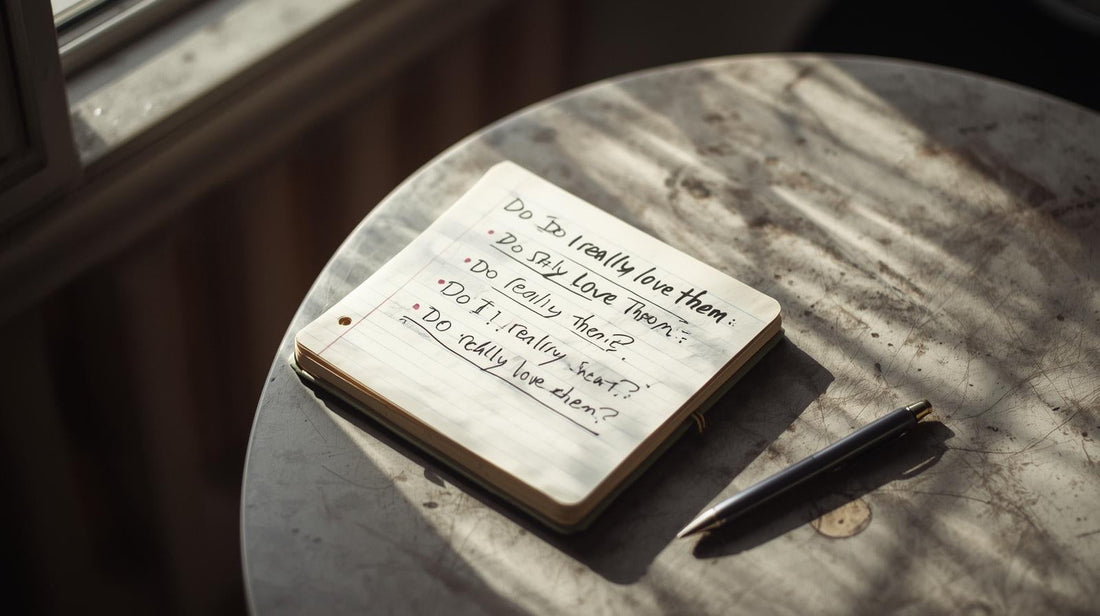 Do Do I really love them:
Do Love Them?
Do really them?
Do I really
Do really love them?